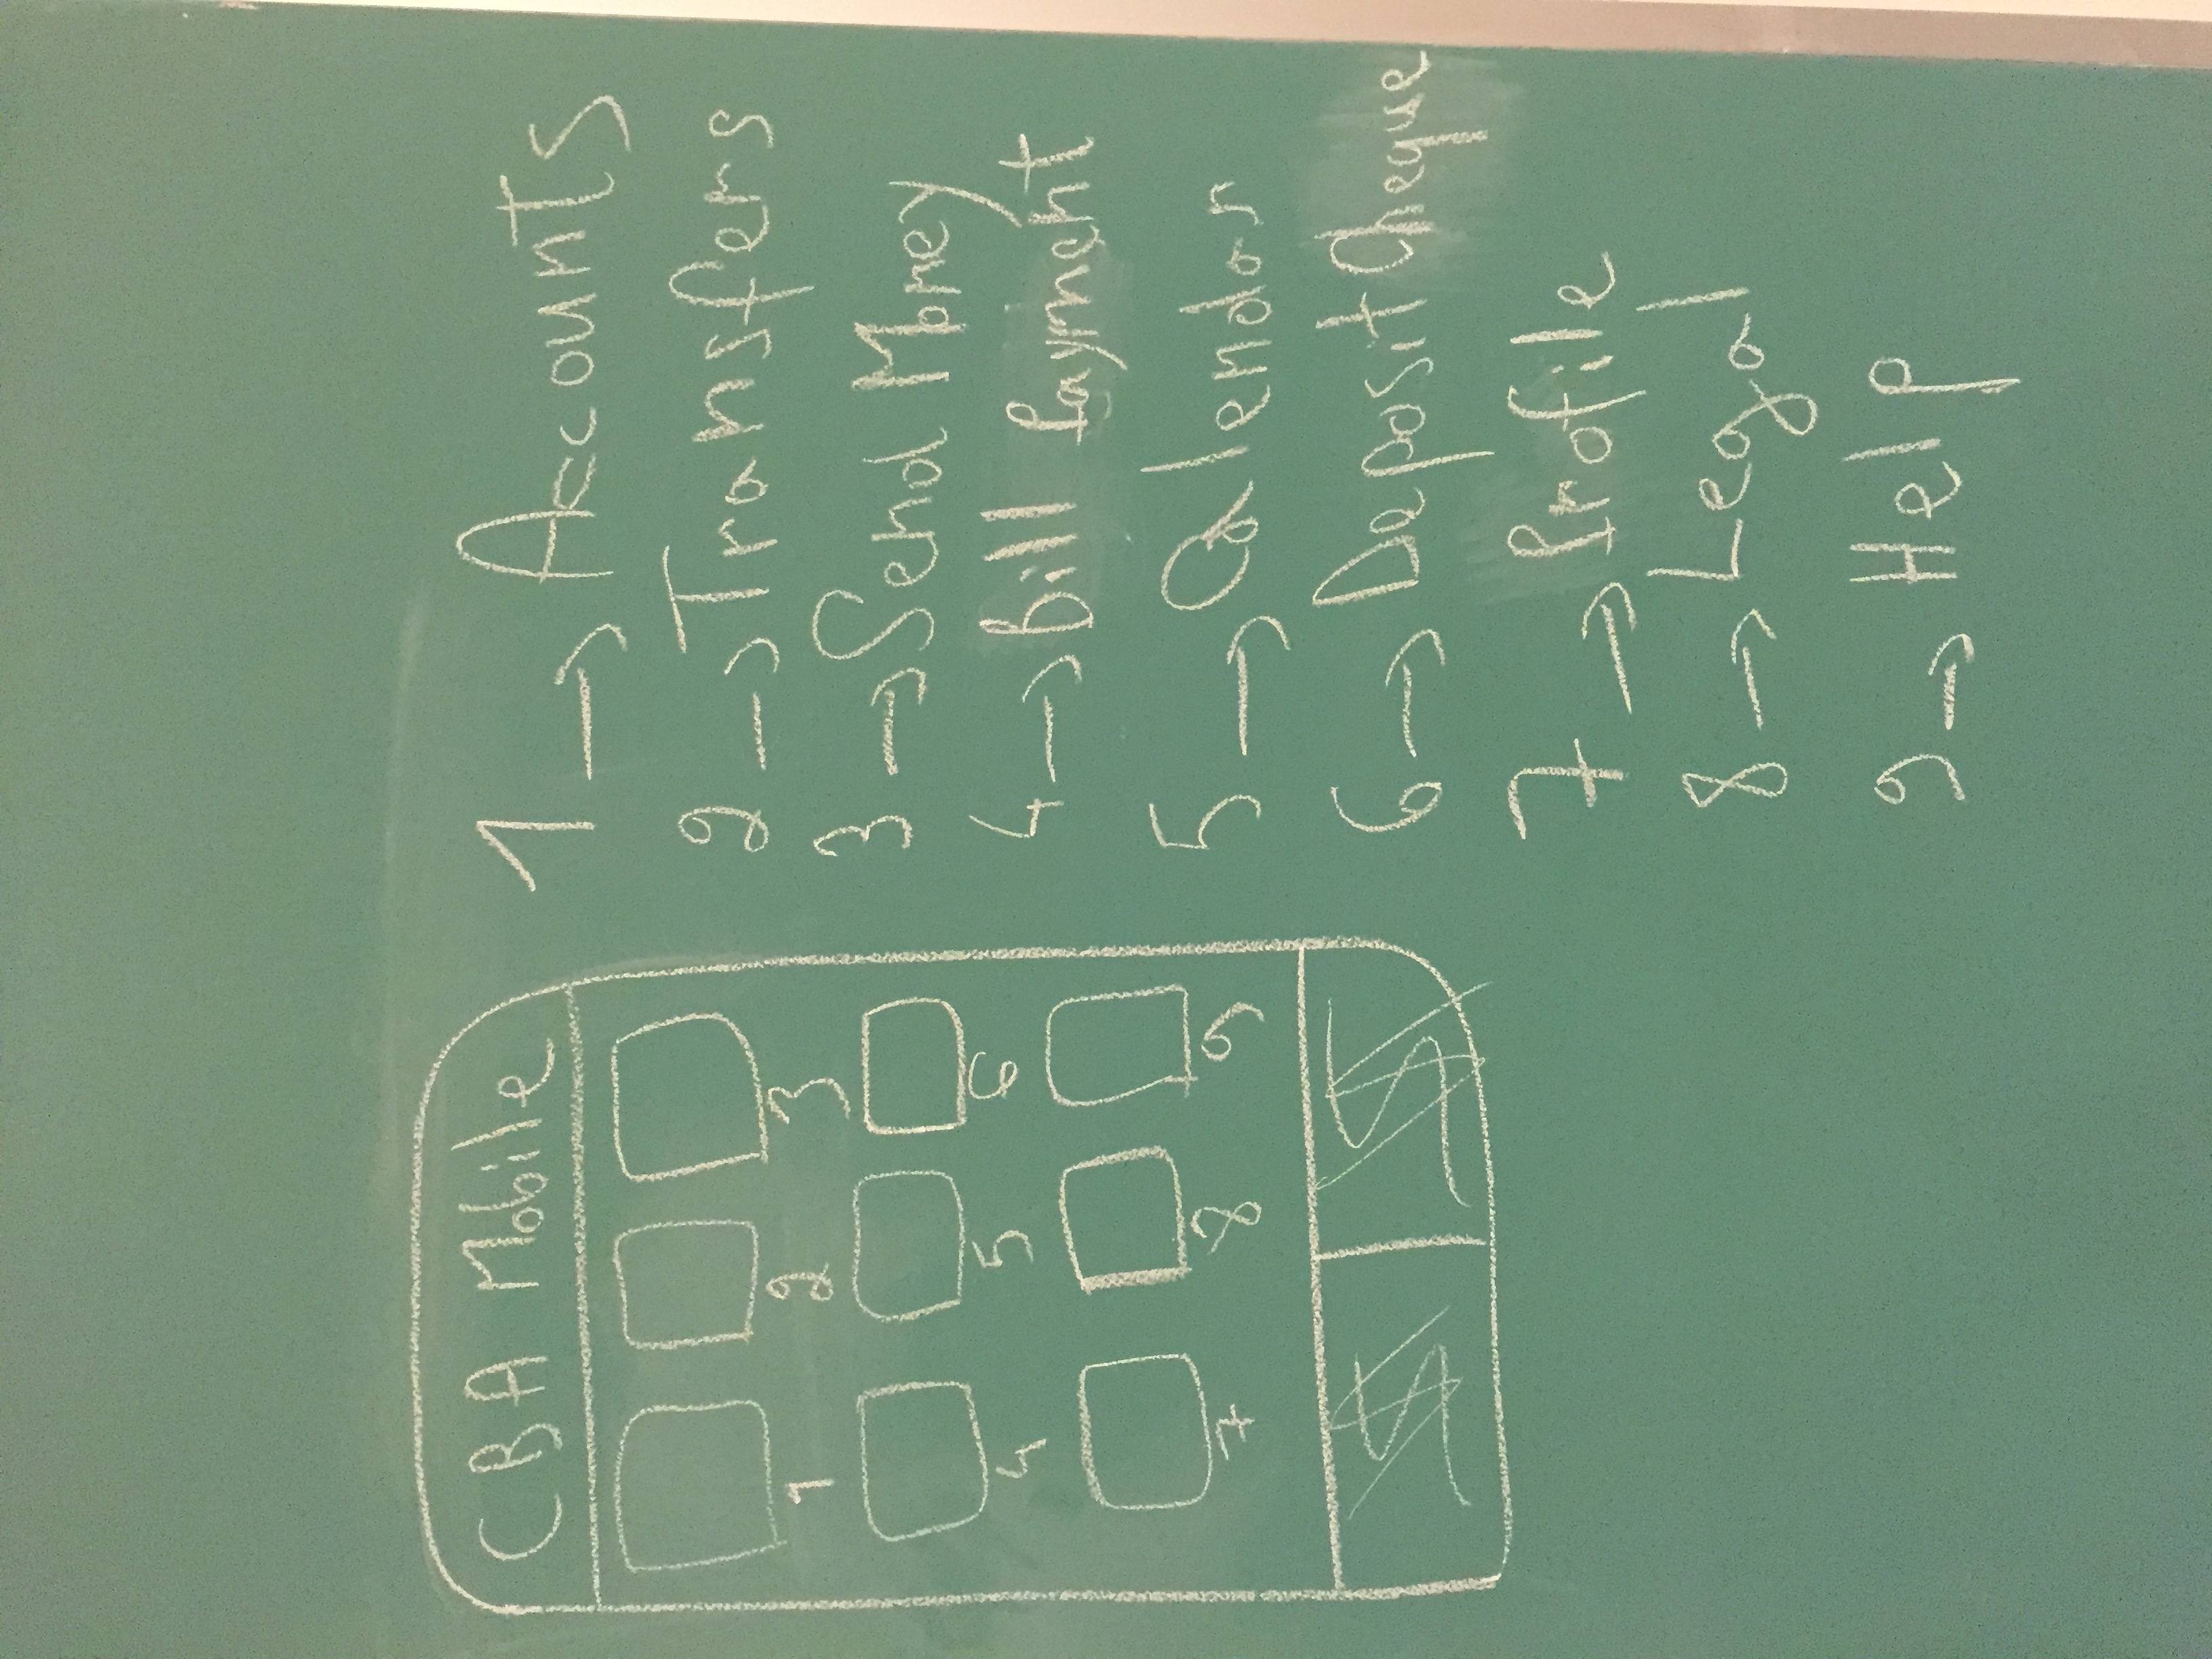 CBA Mobile
1 2 3
4 5 6
7 8 9
1 → Accounts
2 → Transfers
3 → Send Money
4 → Bill Payment
5 → Calendar
6 → Deposit Cheque
7 → Profile
8 → Legal
9 → Help